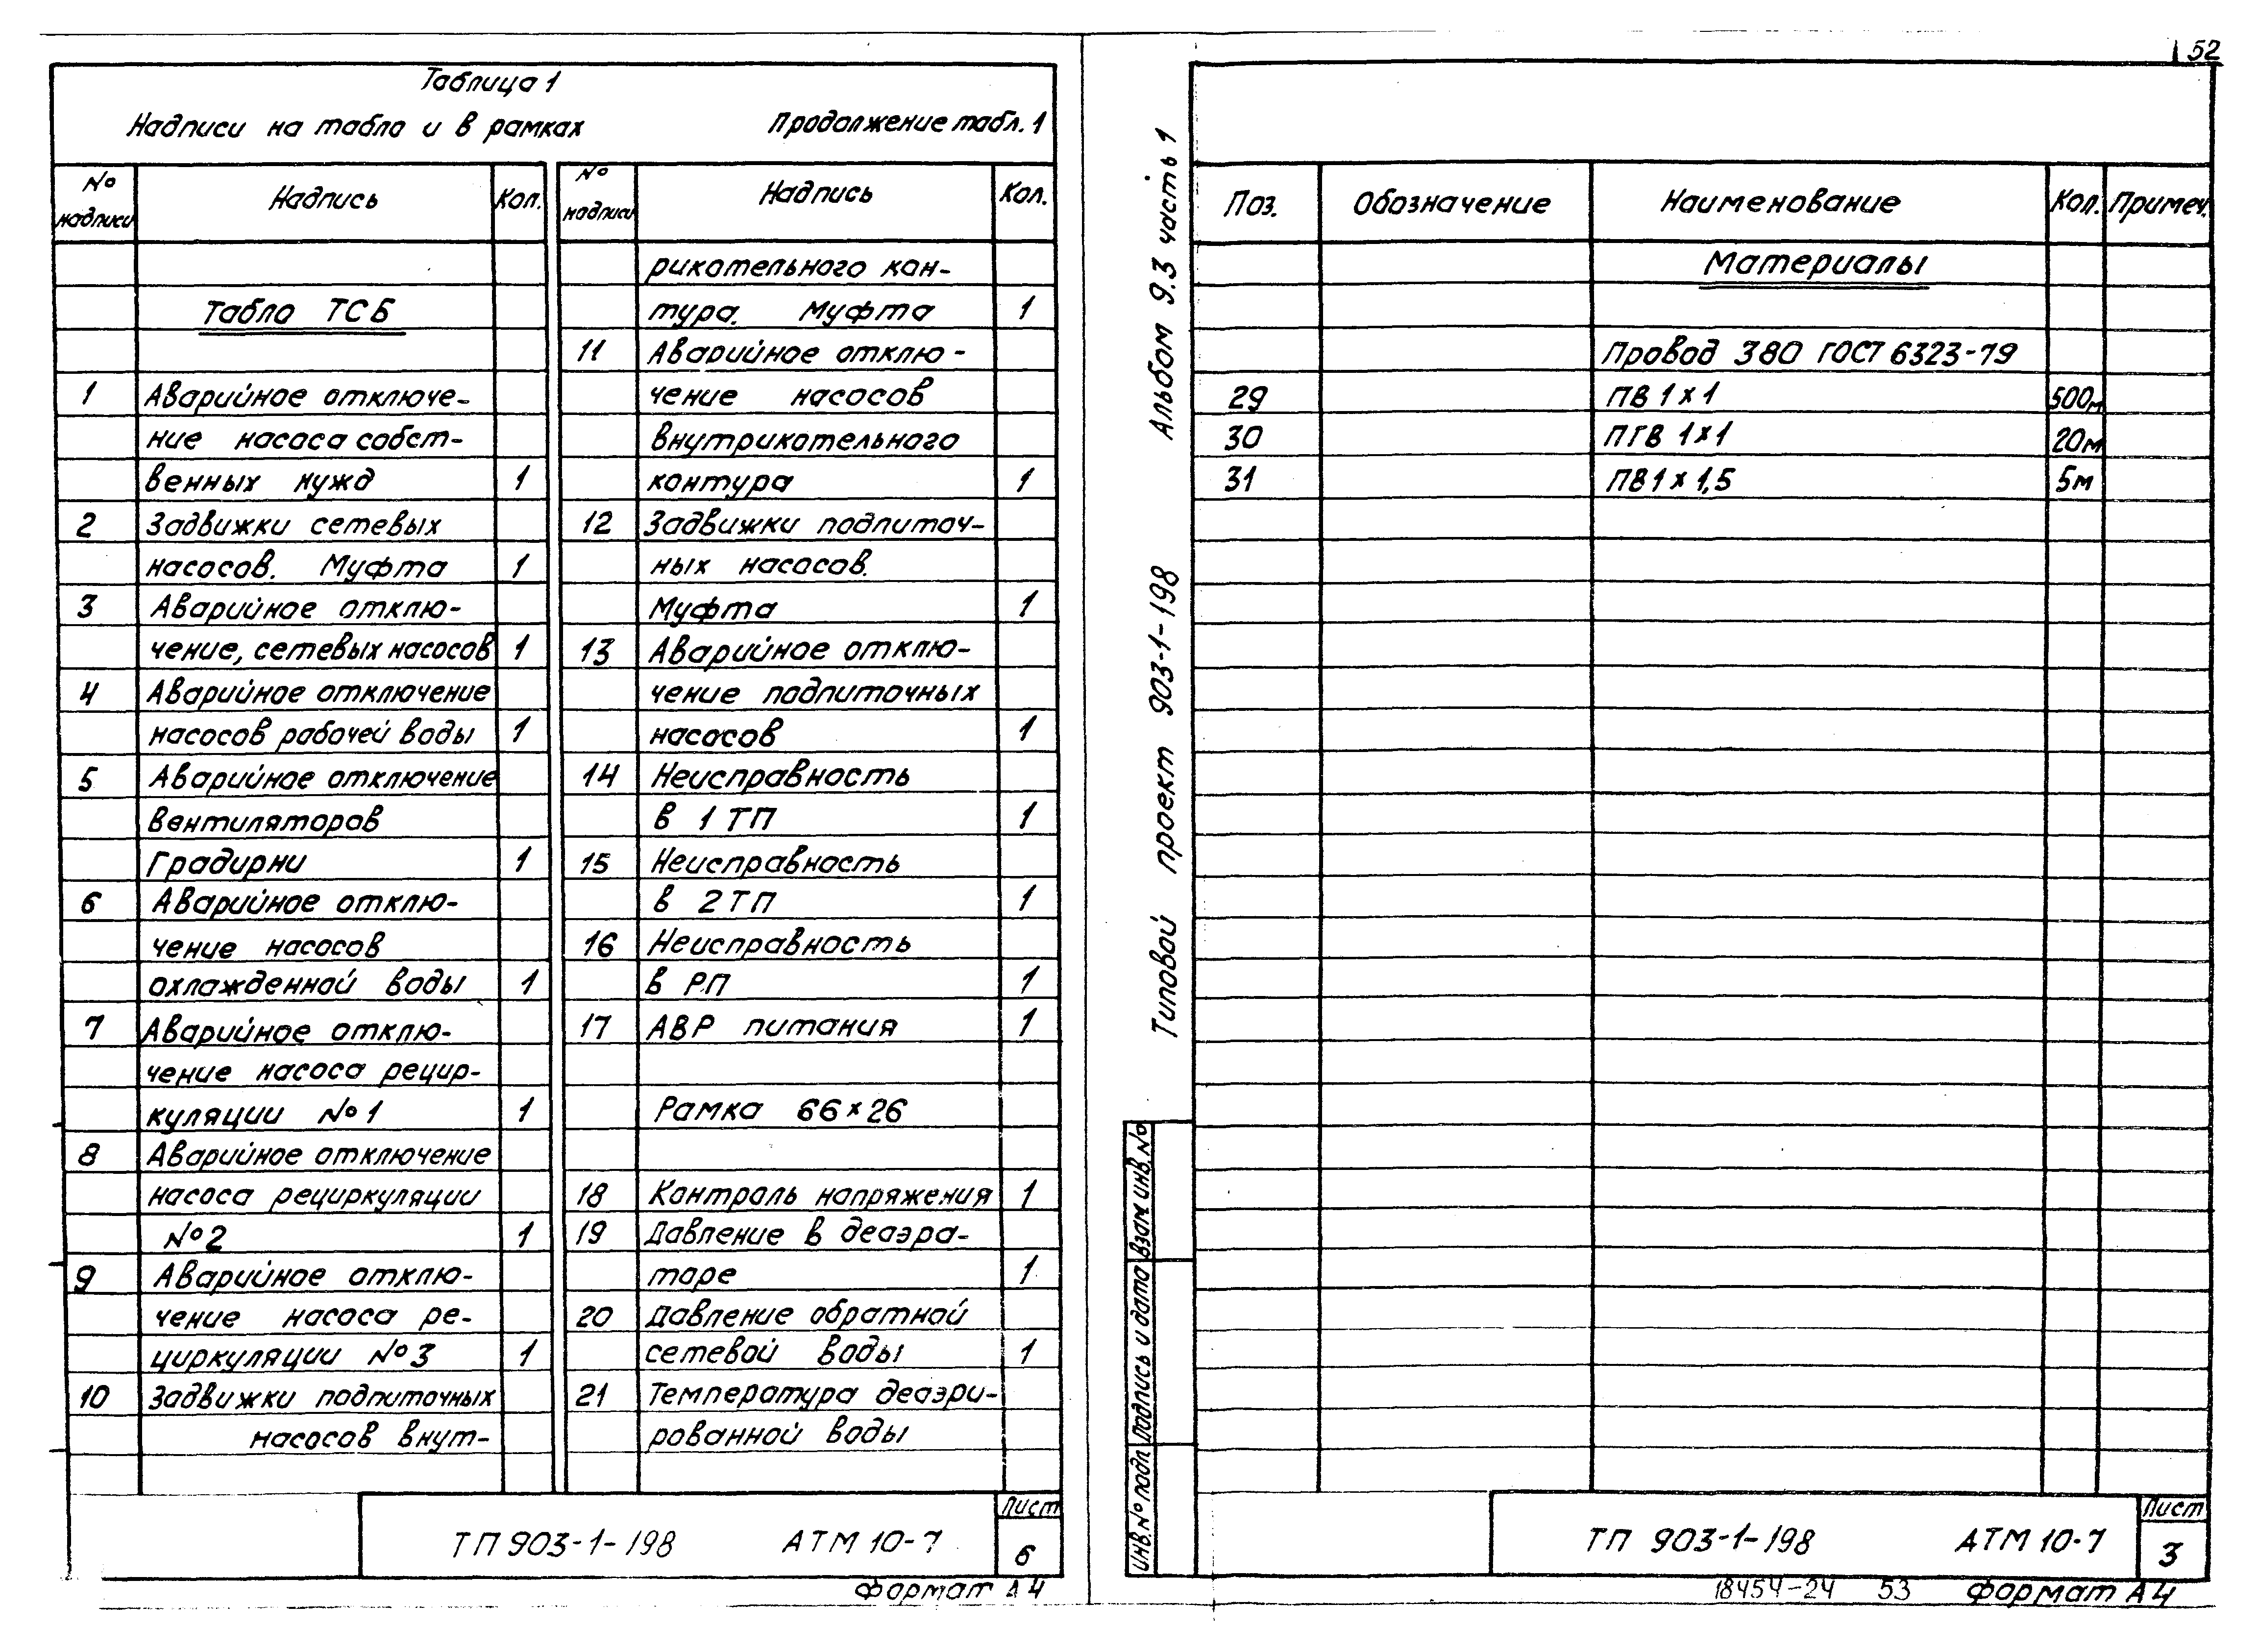 52
Таблица 1
Надписи на табло и в рамках
Продолжение табл. 1
№ надписи Надпись Кол.
Табло ТСБ
1 Аварийное отключе-
ние насоса собст-
венных нужд 1
2 Задвижки сетевых
насосов. Муфта 1
3 Аварийное отклю-
чение, сетевых насосов 1
4 Аварийное отключение
насосов рабочей воды 1
5 Аварийное отключение
вентиляторов
Градирни 1
6 Аварийное отклю-
чение насосов
охлажденной воды 1
7 Аварийное отклю-
чение насоса рецир-
куляции №1 1
8 Аварийное отключение
насоса рециркуляции
№2 1
9 Аварийное отклю-
чение насоса ре-
циркуляции №3 1
10 Задвижки подпиточных
насосов внут-
№ надписи Надпись Кол.
рикотельного кон-
тура. Муфта 1
11 Аварийное отклю-
чение насосов
внутрикотельного
контура 1
12 Задвижки подпиточ-
ных насосов.
Муфта 1
13 Аварийное отклю-
чение подпиточных
насосов 1
14 Неисправность
в 1 ТП 1
15 Неисправность
в 2 ТП 1
16 Неисправность
в РП 1
17 АВР питания 1
Рамка 66×26
18 Контроль напряжения 1
19 Давление в деаэра-
торе 1
20 Давление обратной
сетевой воды 1
21 Температура деаэри-
рованной воды
ТП 903-1-198 АТМ 10-7
Лист
6
Формат А4
Типовой проект 903-1-198 Альбом 9.3 часть 1
Взам инв. №
Подпись и дата
Инв. № подл
Поз. Обозначение Наименование Кол. Примеч.
Материалы
Провод 380 ГОСТ 6323-79
29 ПВ 1×1 500м
30 ПГВ 1×1 20м
31 ПВ 1×1,5 5м
ТП 903-1-198 АТМ 10-7
Лист
3
18454-24 53 Формат А4